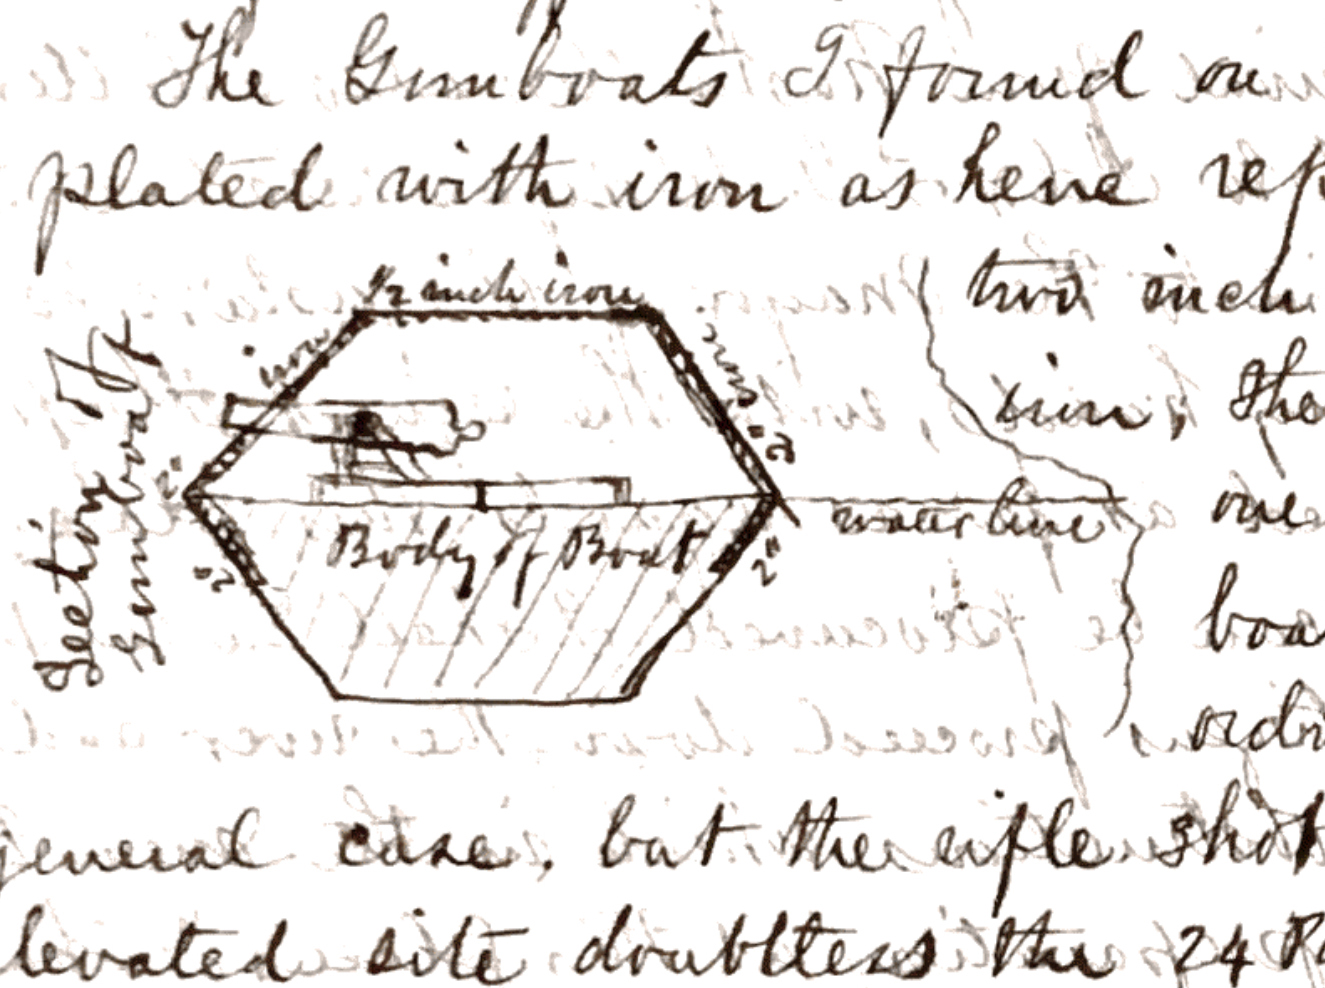 The Gunboats I found on
plated with iron as here rep
two inch
iron, the
one
boa
ordi
general case. but the rifle shot
levated site doubtless the 24 P
Section of
Gunboat
1/2 inch iron
iron
2"
iron
2"
water line
Body of Boat
2"
2"